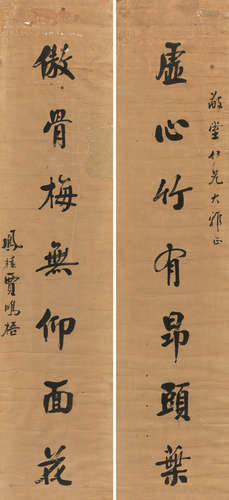 敬堂仁兄大雅正
虛心竹有昂頭葉
傲骨梅無仰面花
賈鳴梧